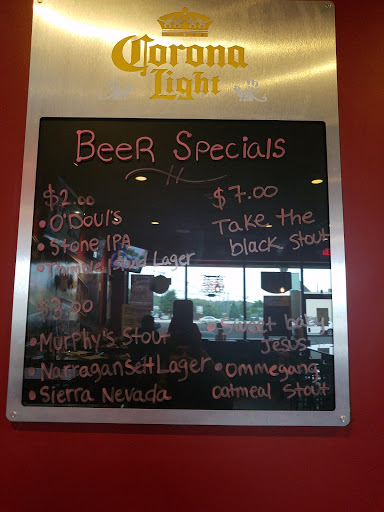 Corona
Light
Beer Specials
$2.00
• O'Doul's
• Stone IPA
Lager
$3.00
• Murphy's Stout
• Narragansett Lager
• Sierra Nevada
$7.00
Take the
black stout
• Sweet baby
Jesus
• Ommegang
oatmeal stout